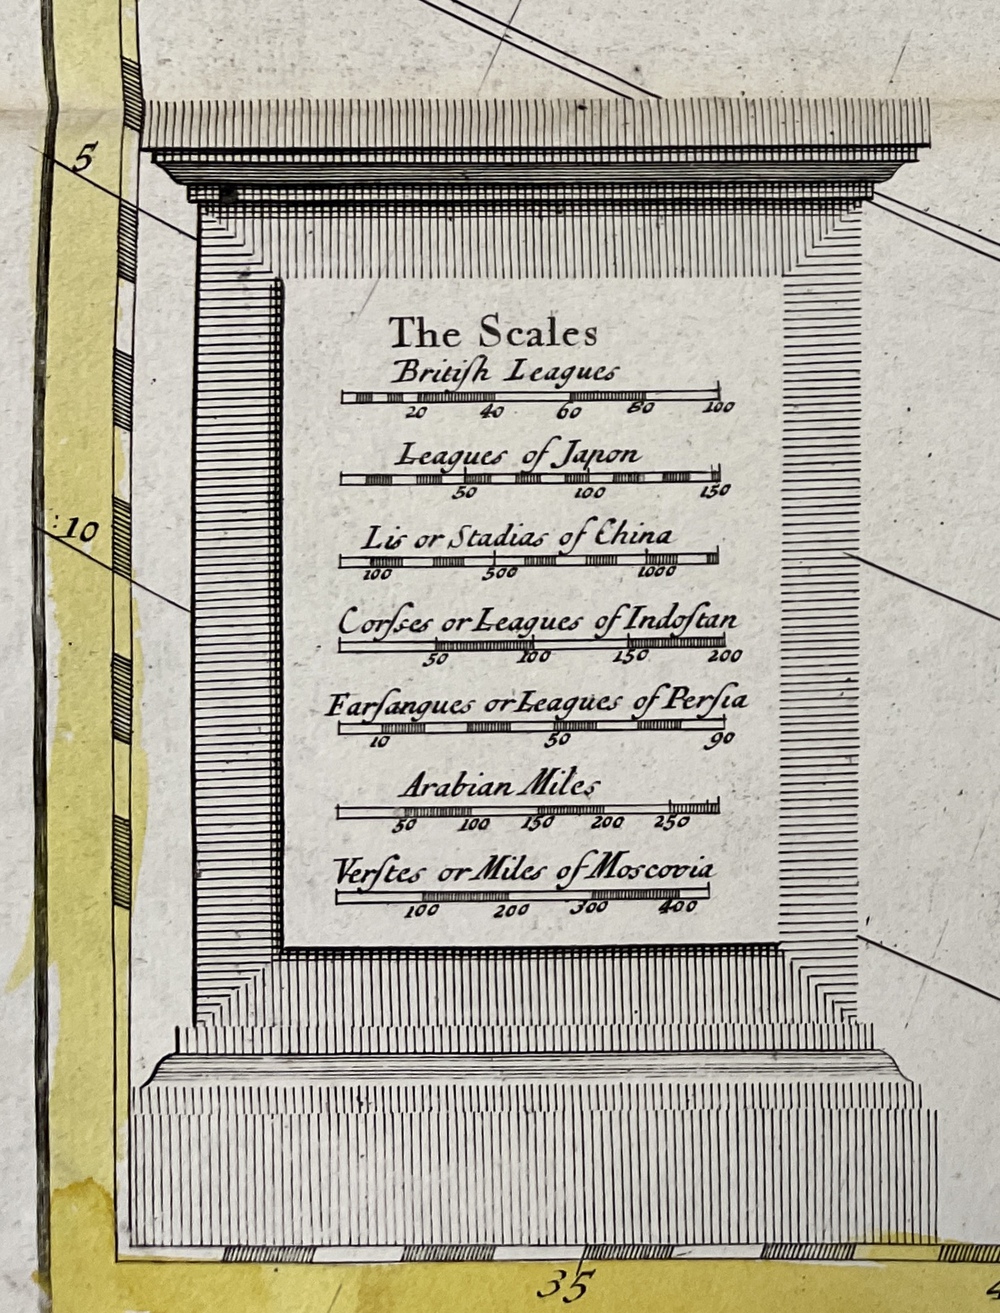 5
10
The Scales
Britiſh Leagues
20 40 60 80 100
Leagues of Japon
50 100 150
Lis or Stadias of China
100 500 1000
Corſses or Leagues of Indoſtan
50 100 150 200
Farſangues or Leagues of Perſia
10 50 90
Arabian Miles
50 100 150 200 250
Verſtes or Miles of Moscovia
100 200 300 400
35